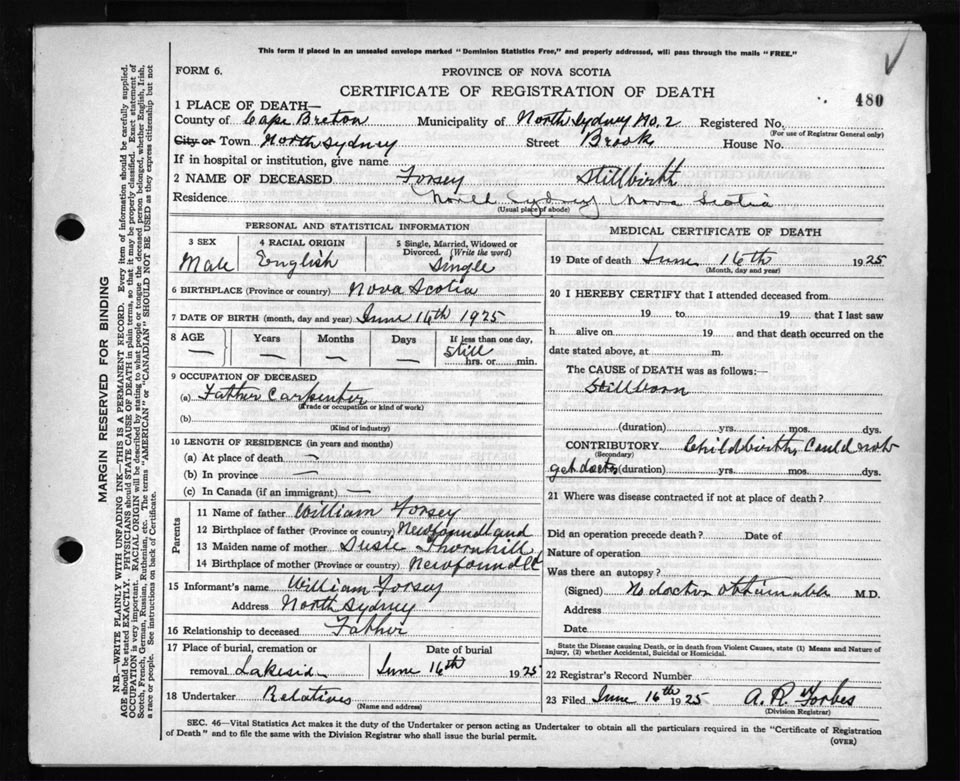 This form if placed in an unsealed envelope marked "Dominion Statistics Free," and properly addressed, will pass through the mails "FREE."
FORM 6.
PROVINCE OF NOVA SCOTIA
CERTIFICATE OF REGISTRATION OF DEATH
480
1 PLACE OF DEATH—
County of Cape Breton Municipality of North Sydney No. 2 Registered No.
(For use of Registrar General only)
City or Town North Sydney Street Brook House No.
If in hospital or institution, give name
2 NAME OF DECEASED Forsey Stillbirth
Residence North Sydney Nova Scotia
(Usual place of abode)
PERSONAL AND STATISTICAL INFORMATION
3 SEX 4 RACIAL ORIGIN 5 Single, Married, Widowed or Divorced. (Write the word)
Male English Single
6 BIRTHPLACE (Province or country) Nova Scotia
7 DATE OF BIRTH (month, day and year) June 16th 1925
8 AGE Years Months Days If less than one day,
— — — — Still hrs. or min.
9 OCCUPATION OF DECEASED
(a) Father Carpenter
(Trade or occupation or kind of work)
(b)
(Kind of industry)
10 LENGTH OF RESIDENCE (in years and months)
(a) At place of death —
(b) In province —
(c) In Canada (if an immigrant) —
Parents
11 Name of father William Forsey
12 Birthplace of father (Province or country) Newfoundland
13 Maiden name of mother Susie Thornhill
14 Birthplace of mother (Province or country) Newfoundld
15 Informant's name William Forsey
Address North Sydney
16 Relationship to deceased Father
17 Place of burial, cremation or Date of burial
removal Lakeside June 16th 1925
18 Undertaker Relatives
(Name and address)
MEDICAL CERTIFICATE OF DEATH
19 Date of death June 16th 1925
(Month, day and year)
20 I HEREBY CERTIFY that I attended deceased from
19 to 19 that I last saw
h alive on 19 and that death occurred on the
date stated above, at m.
The CAUSE of DEATH was as follows:—
Stillborn
(duration) yrs. mos. dys.
CONTRIBUTORY Childbirth, Could not
(Secondary)
get doctor (duration) yrs. mos. dys.
21 Where was disease contracted if not at place of death?
Did an operation precede death? Date of
Nature of operation
Was there an autopsy?
(Signed) No doctor obtainable M.D.
Address
Date
State the Disease causing Death, or in death from Violent Causes, state (1) Means and Nature of
Injury, (2) whether Accidental, Suicidal or Homicidal.
22 Registrar's Record Number
23 Filed June 16th 1925 A. R. Forbes
(Division Registrar)
SEC. 46—Vital Statistics Act makes it the duty of the Undertaker or person acting as Undertaker to obtain all the particulars required in the "Certificate of Registration
of Death" and to file the same with the Division Registrar who shall issue the burial permit.
(OVER)
MARGIN RESERVED FOR BINDING
N.B.—WRITE PLAINLY WITH UNFADING INK—THIS IS A PERMANENT RECORD. Every item of information should be carefully supplied.
AGE should be stated EXACTLY. PHYSICIANS should STATE CAUSE OF DEATH in plain terms, so that it may be properly classified. Exact statement of
OCCUPATION is very important. RACIAL ORIGIN will be described by stating to what people or tongue the deceased person belonged, whether English, Irish,
Scotch, French, German, Russian, Ruthenian, etc. The terms "AMERICAN" or "CANADIAN" SHOULD NOT BE USED as they express citizenship but not
a race or people. See instructions on back of Certificate.